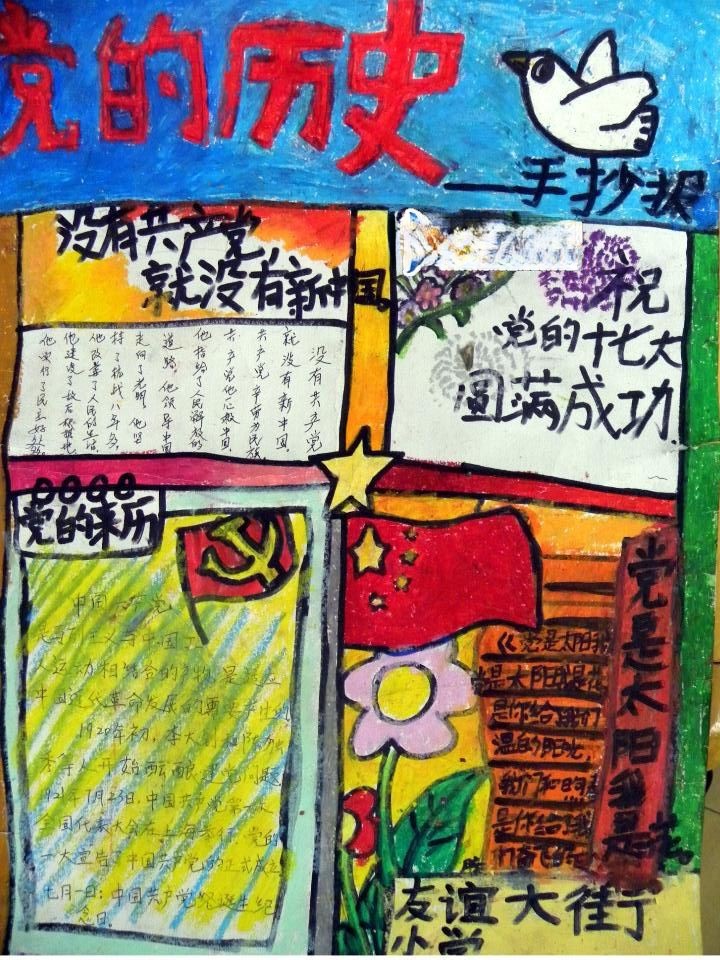 党的历史
——手抄报
没有共产党
就没有新中国。
没有共产党
就没有新中国。
共产党 辛劳为民族
共产党他一心救中国
他指给了人民解放的
道路 他领导中国
走向了光明 他坚
持了抗战八年多
他改善了人民的生活
他建设了敌后根据地
他实行了民主好处多
祝
党的十七大
圆满成功.
党的来历
中国共产党
是马列主义与中国工
人运动相结合的产物,是
中国近代革命发展的
1920年初,李大钊和陈独
秀等人开始酝酿建党问题
1921年7月23日,中国共产党第一次
全国代表大会在上海举行,党的
一大宣告了中国共产党的正式成立
七月一日:中国共产党诞生纪
念日.
党是太阳我是花
《党是太阳我
党是太阳我是花
是你给我们
温的阳光,
我们和的
是你给我
们
友谊大街
小学